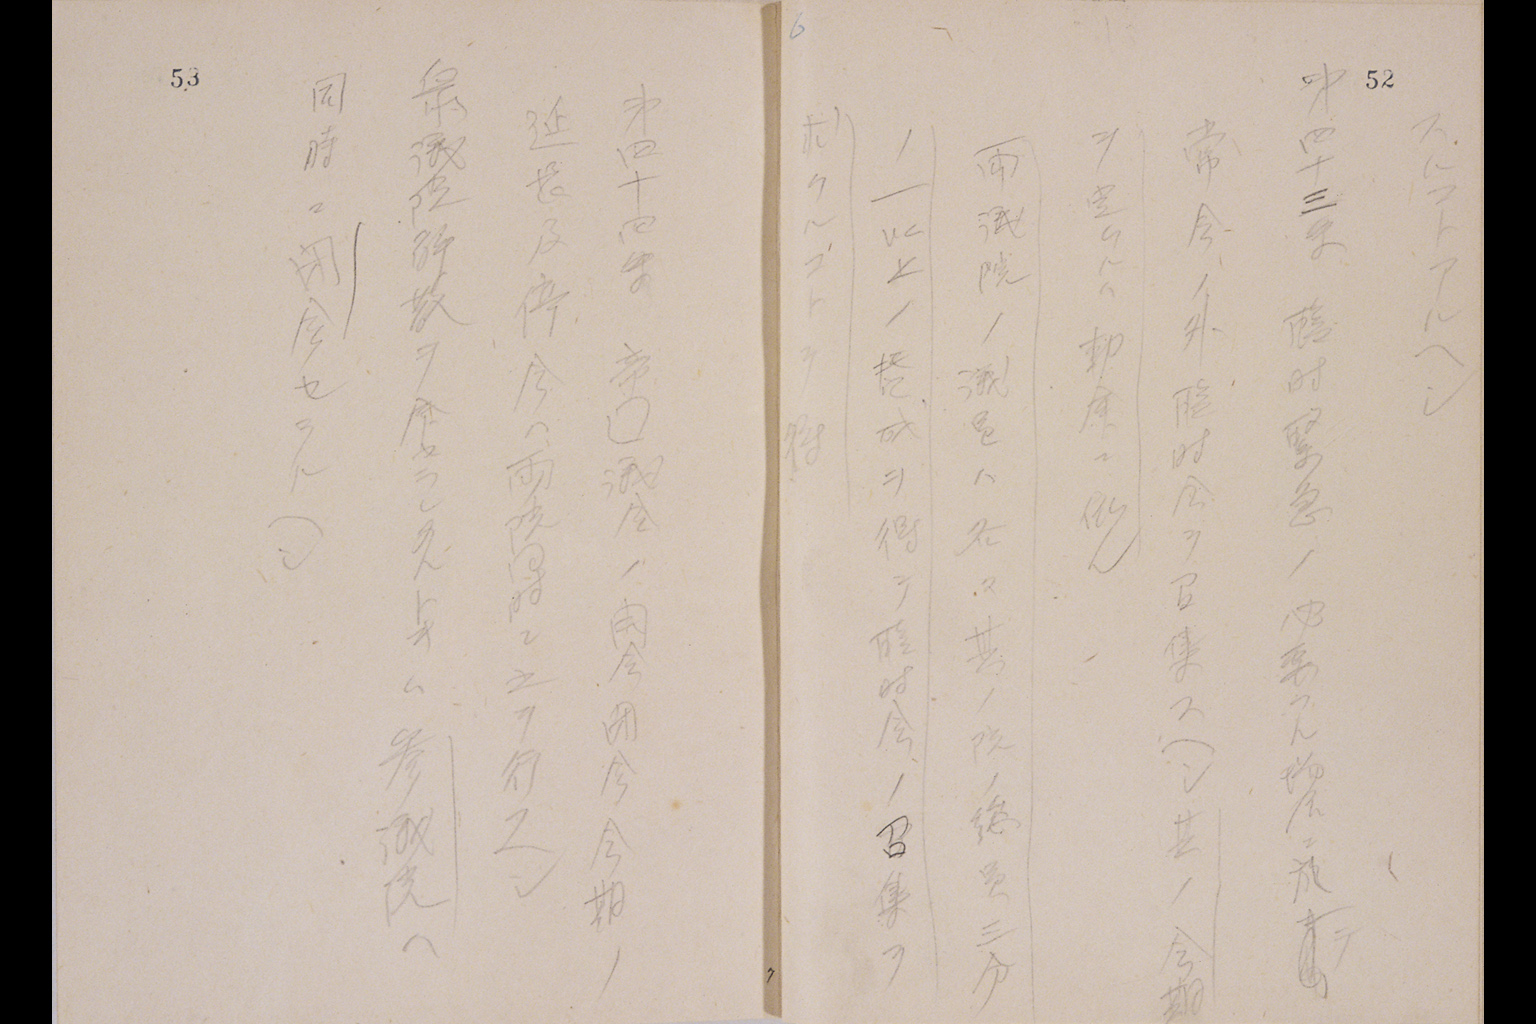 52
スルコトアルヘシ
第四十三条 臨時緊急ノ必要アル場合ニ於テ
常会ノ外臨時会ヲ召集スヘシ其ノ会期
ヲ定ムルハ勅命ニ依ル
両議院ノ議員ハ各々其ノ院ノ総員三分
ノ一以上ノ賛成ヲ得テ臨時会ノ召集ヲ
求ムルコトヲ得
53
第四十四条 帝国議会ノ開会閉会会期ノ
延長及停会ハ両院同時ニ之ヲ行フヘシ
衆議院解散ヲ命セラレタル時ハ参議院ハ
同時ニ閉会セラルヘシ